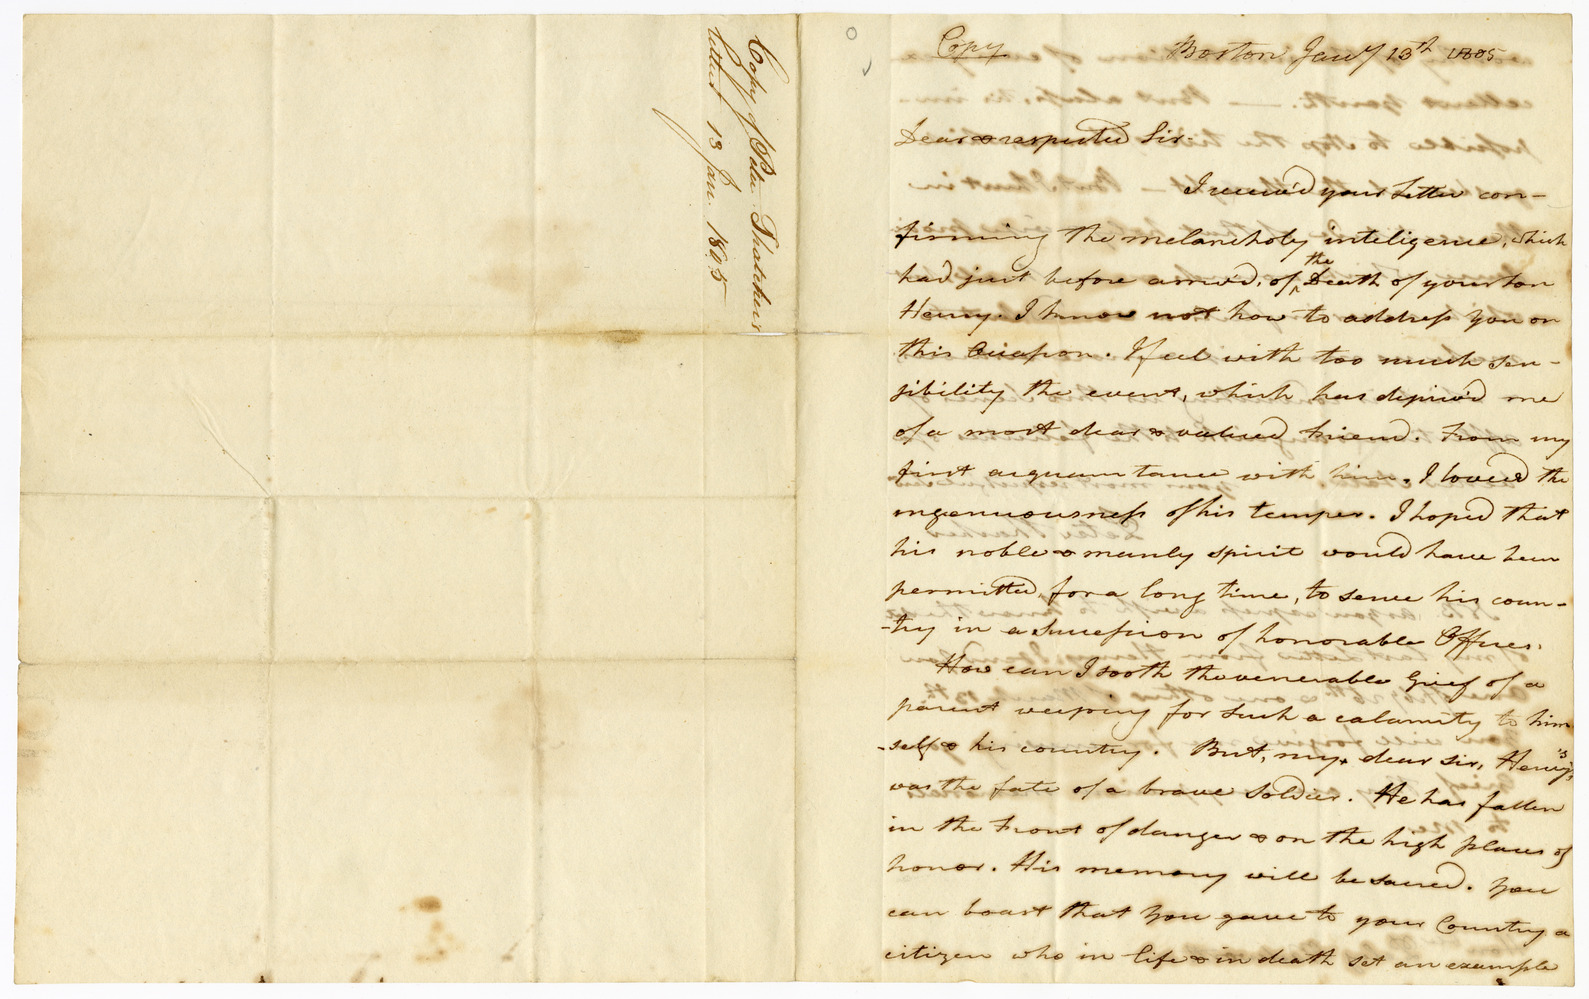 Copy of Peter Thatchers
letter 13 Jan. 1805
Copy Boston Jan'y 13th 1805
Dear & respected Sir.
I receiv'd your Letter con-
firming the melancholy inteligence, which
had just before arriv'd, of the Death of your son
Henry. I know not how to address you on
this Occasion. I feel with too much sen-
sibility the event, which has depriv'd me
of a most dear & valued Friend. From my
first acquaintance with him, I loved the
ingenuousness of his temper. I hoped that
his noble & manly spirit would have been
permitted, for a long time, to serve his coun-
-try in a Succession of honorable Offices.
How can I sooth the venerable Grief of a
parent weeping for such a calamity to him
-self & his country. But, my dear sir, Henry's
was the fate of a brave Soldier. He has fallen
in the Front of danger & on the high places of
honor. His memory will be sacred. You
can boast that you gave to your Country a
citizen who in life & in death set an example